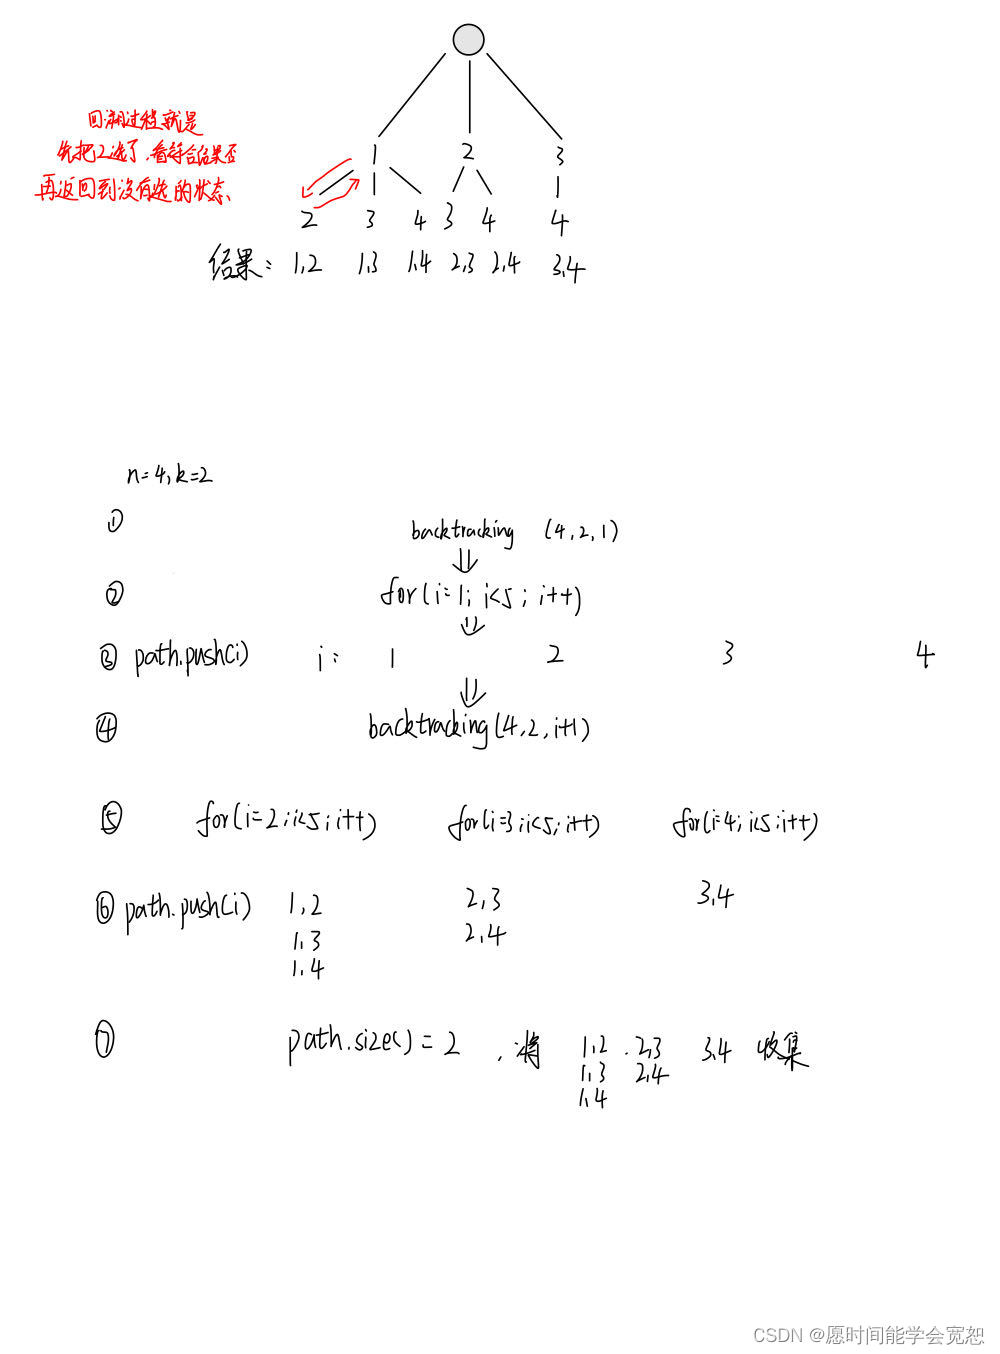 回溯过程就是
先把2选了,看符合结果否
再返回到没有选的状态、
1 2 3
2 3 4 3 4 4
结果: 1,2 1,3 1,4 2,3 2,4 3,4
n=4,k=2
① backtracking (4,2,1)
② for(i=1; i<5; i++)
③ path.push(i) i: 1 2 3 4
④ backtracking(4,2,i+1)
⑤ for(i=2;i<5;i++) for(i=3;i<5;i++) for(i=4;i<5;i++)
⑥ path.push(i) 1,2 2,3 3,4
1,3 2,4
1,4
⑦ path.size()=2 ,将 1,2 . 2,3 3,4 收集
1,3 2,4
1,4
CSDN @愿时间能学会宽恕